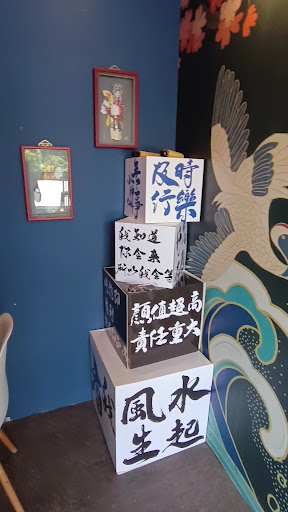 及時
行樂
我知道
你会來
所以我会等
顏值超高
責任重大
風生
水起